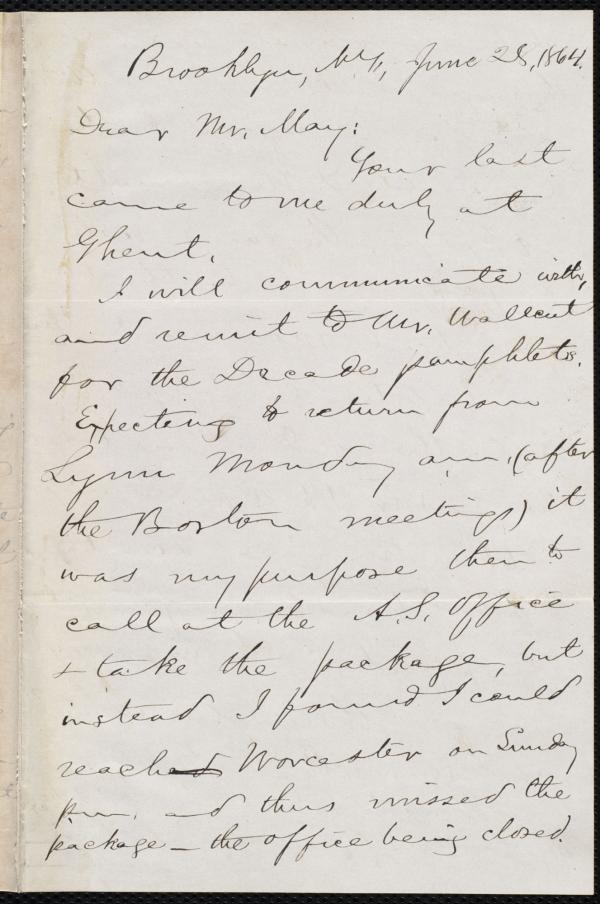 Brooklyn, N.Y., June 28, 1864.
Dear Mr. May:
Your last
came to me duly at
Ghent.
I will communicate with,
and remit to Mr. Wallcut
for the Decade pamphlets.
Expecting to return from
Lynn Monday a.m. (after
the Boston meetings) it
was my purpose then to
call at the A.S. Office
+ take the package, but
instead I found I could
reached Worcester on Sunday
p.m. and thus missed the
package — the office being closed.